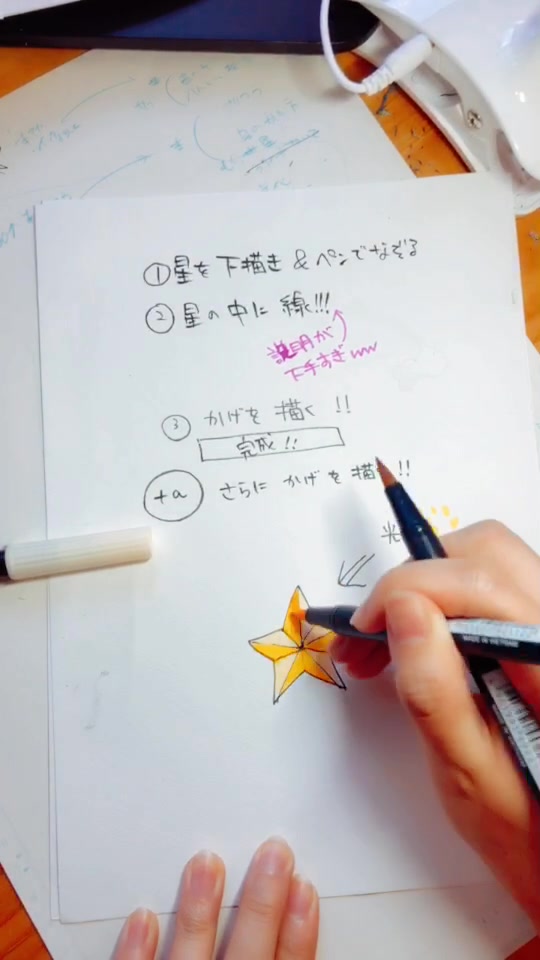 ①星を下描き & ペンでなぞる
②星の中に 線!!!
説明が
下手すぎww
③ かげを 描く !!
完成!!
+a さらに かげを 描く!!
光